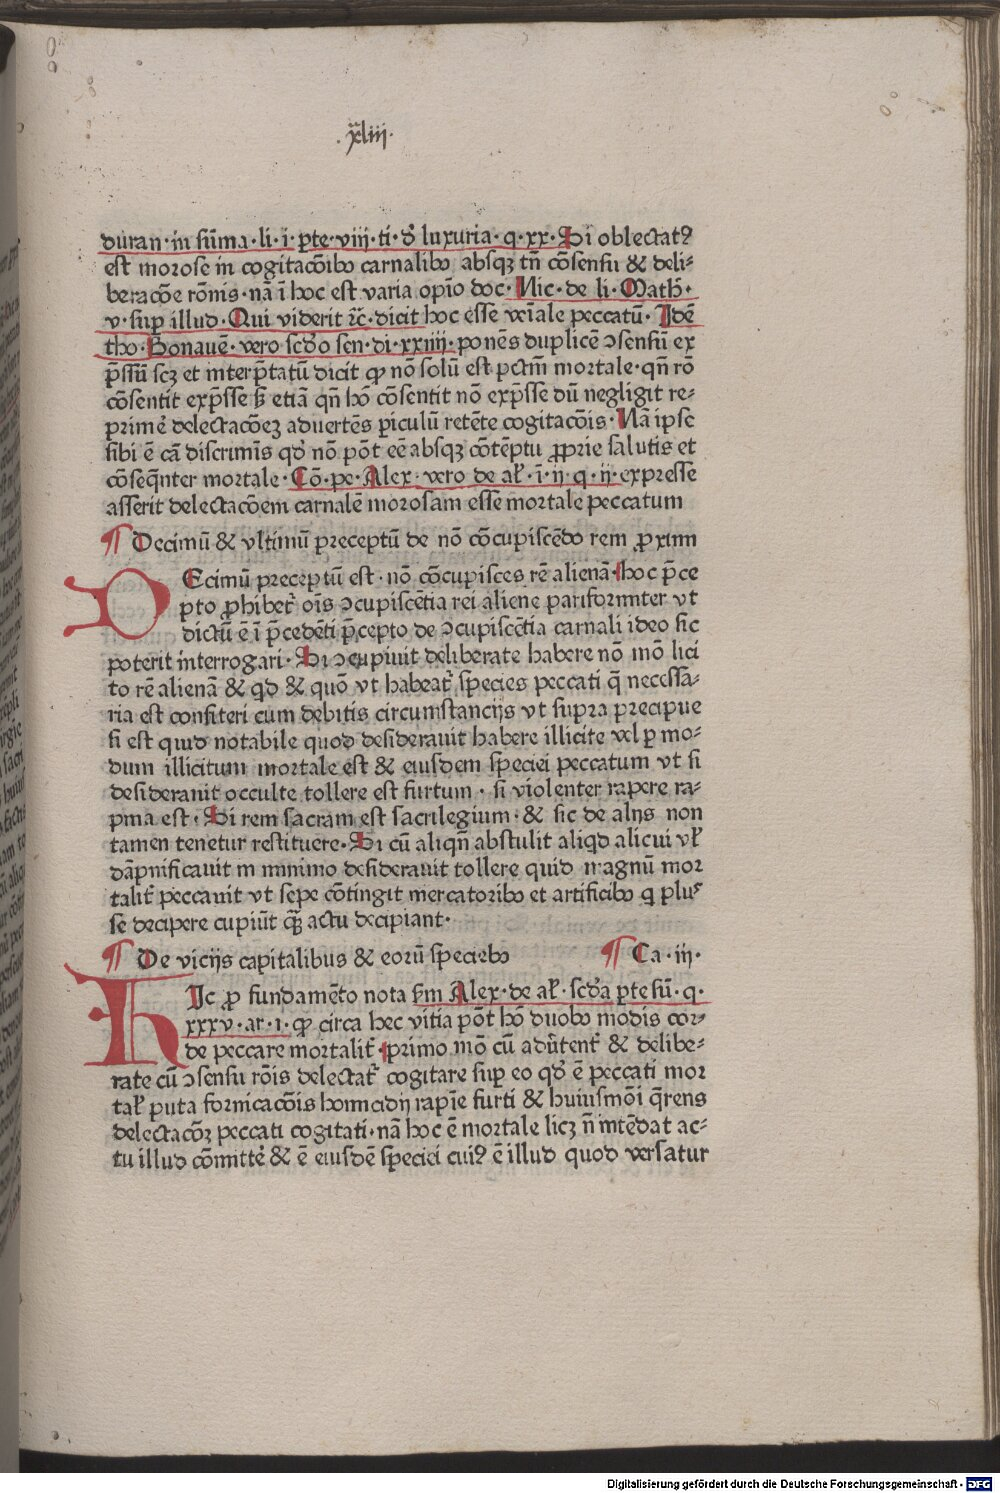 .xliii.
duran·in sūma·li·i·ꝑte·viij·ti·d̕ luxuria·q·xx·Si oblectatꝰ
est morose in cogitacōibꝰ carnalibꝰ absqꝫ tn̄ cōsensu & deli-
beracōe rōnis·nā ī hoc est varia opīo doc·Nic·de li·Math·
v·suꝑ illud·Qui viderit ⁊c̄·dicit hoc esse veīale peccatū·Idē
tho·Bonauē·vero scd̕o sen·di·xxiiij·ponēs duplicē ↄsensū ex
p̄ssū scꝫ et interp̄tatū dicit ꝙ nō solū est pctm̄ mortale·qn̄ rō
cōsentit exp̄sse sꝫ etiā qn̄ hō cōsentit nō exp̄sse dū negligit re-
primē delectacōeꝫ aduertēs ꝑiculū retēte cogitacōis·Nā ipse
sibi ē cā discrimīs qd̕ nō pōt eē absqꝫ cōtēptu ꝓprie salutis et
cōseqn̄ter mortale·Cō·pe·Alex·vero de aƚ·ī·ij·q·ij·expresse
asserit delectacōem carnalē morosam esse mortale peccatum
¶ Decimū & vltimū preceptū de nō cōcupiscēdo rem ꝓximi
DEcimū preceptū est·nō cōcupisces rē alienā·hoc p̄ce
pto ꝓhibet᷑ oīs ↄcupiscētia rei aliene pariformiter vt
dictū ē ī p̄cedēti p̄cepto de ↄcupiscētia carnali ideo sic
poterit interrogari·Si ↄcupiuit deliberate habere nō mō lici
to rē alienā & qd & quō vt habeat᷑ species peccati q̄ necessa-
ria est confiteri cum debitis circumstancijs vt supra precipue
si est quid notabile quod desiderauit habere illicite vel ꝑ mo-
dum illicitum mortale est & eiusdem speciei peccatum vt si
desiderauit occulte tollere est furtum · si violenter rapere ra-
pina est·Si rem sacram est sacrilegium·& sic de alijs non
tamen tenetur restituere·Si cū aliqn̄ abstulit aliqd alicui vƚ
dāpnificauit in minimo desiderauit tollere quid magnū mor
talit᷑ peccauit vt sepe cōtingit mercatoribꝰ et artificibꝰ q̄ plus
se decipere cupiūt qꝫ̄ actu decipiant·
¶ De vicijs capitalibus & eorū speciebꝰ ¶ Ca·iij·
HIc ꝓ fundamēto nota scd̄m Alex·de aƚ·scd̕a ꝑte sū·q·
xxxv·ar·i·ꝙ circa hec vitia pōt hō duobꝰ modis cor-
de peccare mortalit᷑ primo mō cū adūtent᷑ & delibe-
rate cū ↄsensu rōis delectat᷑ cogitare suꝑ eo qd̕ ē peccati mor
taƚ puta fornicacōis homicidij rapīe furti & huiusmōi q̄rens
delectacōꝫ peccati cogitati·nā hoc ē mortale licꝫ n̄ intēdat ac-
tu illud cōmittē & ē eiusdē speciei cuiꝰ ē illud quod versatur
Digitalisierung gefördert durch die Deutsche Forschungsgemeinschaft - DFG